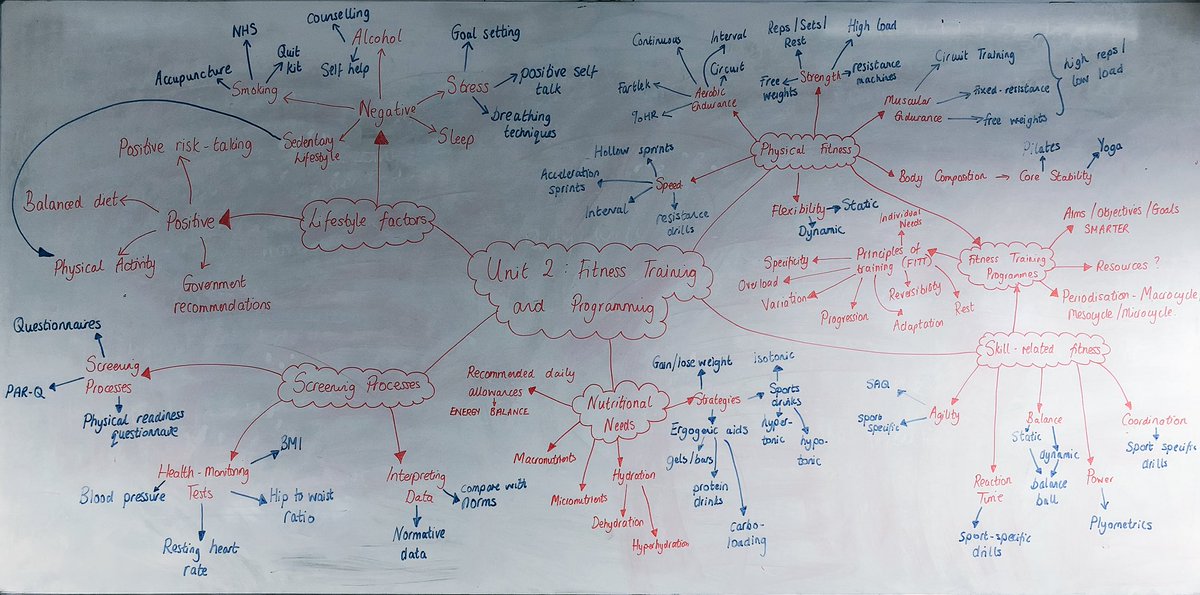 Unit 2: Fitness Training
and Programming
Lifestyle factors
Negative
Smoking
NHS
Quit
kit
Accupuncture
Alcohol
Counselling
Self help
Stress
Goal setting
positive self
talk
breathing
techniques
Sleep
Sedentary
Lifestyle
Positive
Positive risk-taking
Balanced diet
Physical Activity
Government
recommendations
Screening Processes
Screening
Processes
Questionnaires
PAR-Q
Physical readiness
questionnaire
Health-monitoring
Tests
BMI
Blood pressure
Hip to waist
ratio
Resting heart
rate
Interpreting
Data
compare with
norms
Normative
data
Nutritional
Needs
Recommended daily
allowances
ENERGY BALANCE
Macronutrients
Micronutrients
Hydration
Dehydration
Hyperhydration
Strategies
Gain/lose weight
Sports
drinks
isotonic
hyper-
tonic
hypo-
tonic
Ergogenic aids
gels/bars
protein
drinks
carbo-
loading
Physical Fitness
Aerobic
Endurance
Continuous
Interval
Circuit
Fartlek
%HR
Strength
Reps/Sets/
Rest
High load
Free
weights
resistance
machines
Muscular
Endurance
Circuit Training
fixed-resistance
free weights
high reps/
low load
Body Composition
Core Stability
Pilates
Yoga
Speed
Hollow sprints
Acceleration
sprints
Interval
resistance
drills
Flexibility
Static
Dynamic
Fitness Training
Programmes
Aims/Objectives/Goals
SMARTER
Resources?
Periodisation - Macrocycle
Mesocycle/Microcycle
Principles of
training (FITT)
Individual
Needs
Specificity
Overload
Variation
Progression
Adaptation
Reversibility
Rest
Skill-related fitness
Agility
SAQ
Sport
specific
Reaction
Time
sport-specific
drills
Balance
Static
dynamic
balance
ball
Power
Plyometrics
Coordination
Sport specific
drills